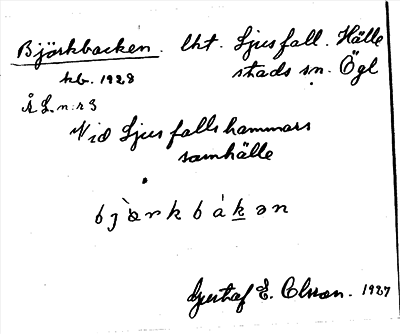 Björkbacken. lht. Ljusfall. Hälle
kb. 1928 stads sn. Ögl
Å L. n:r 3
Vid Ljusfallshammars
samhälle
bjærkbákən
Gustaf E. Olsson. 1927